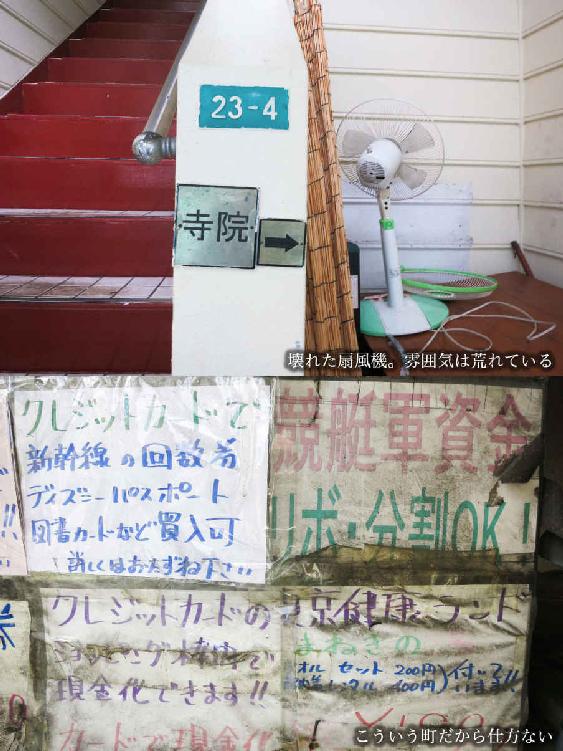 23-4
寺院
→
壊れた扇風機。雰囲気は荒れている
クレジットカードで
新幹線の回数券
ディズニーパスポート
図書カードなど買入可
詳しくはおたずね下さい
競艇軍資金
リボ・分割OK!
クレジットカードの
ショッピング枠内で
現金化できます!!
カードで現金化
京健康ランド
まねきの
セット 200円
100円
付いて
います!!
こういう町だから仕方ない